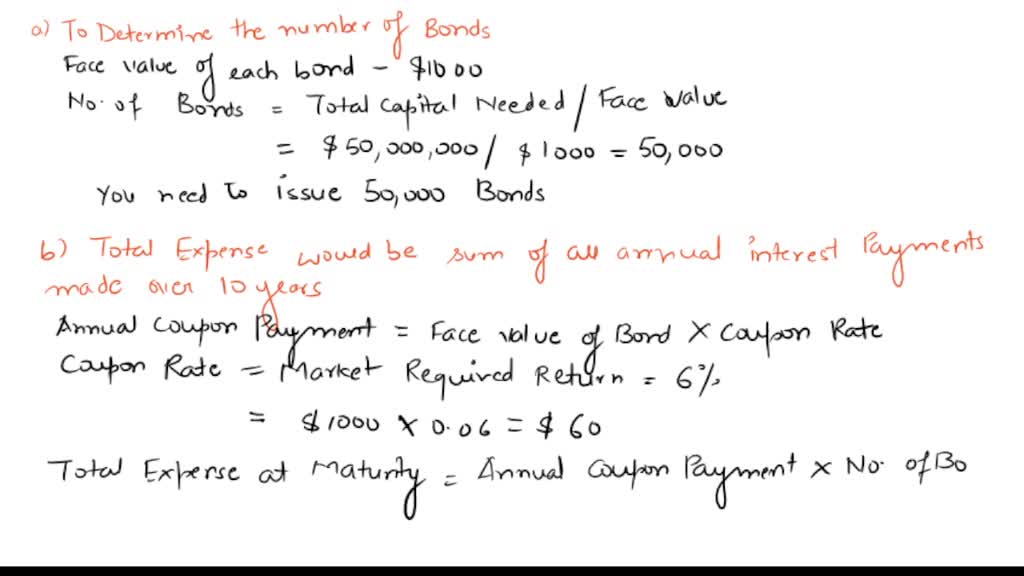 a) To Determine the number of Bonds
Face value of each bond - $1000
No. of Bonds = Total Capital Needed / Face value
= $50,000,000 / $1000 = 50,000
You need to issue 50,000 Bonds
b) Total Expense would be sum of all annual interest Payments
made over 10 years
Annual Coupon Payment = Face value of Bond x Coupon Rate
Coupon Rate = Market Required Return = 6%
= $1000 x 0.06 = $60
Total Expense at Maturity = Annual Coupon Payment x No. of Bo